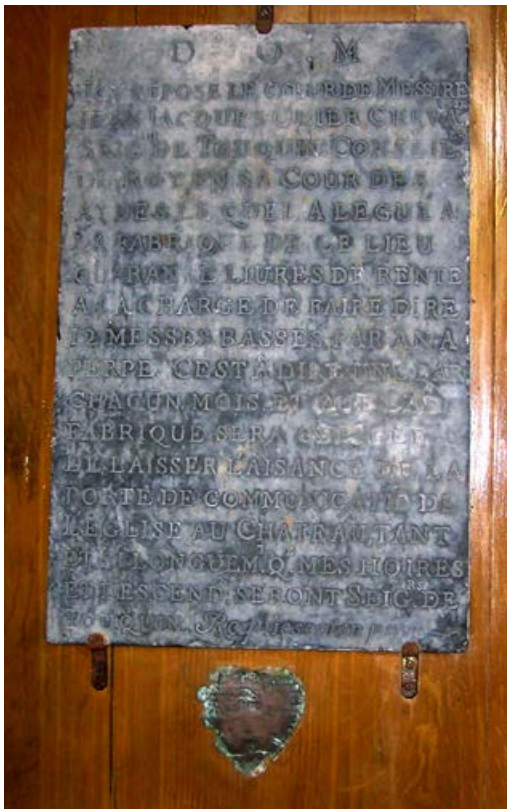 D O M
REPOSE LE COEUR DE MESSIRE
JEAN JACQUES OLIER CHEVA
SEIG DE TOUQUIN CONSEIL
DU ROY EN SA COUR DES
AYDES LE QUEL A LEGUE A
LA FABRIQUE DE CE LIEU
QUARANTE LIURES DE RENTE
A LA CHARGE DE FAIRE DIRE
12 MESSES BASSES PAR AN A
PERPE. C'EST À DIRE UNE PAR
CHACUN MOIS ET QUE LAD
FABRIQUE SERA OBLIGEE
DE LAISSER L'AISANCE DE LA
PORTE DE COMMUNICATIO DE
L'EGLISE AU CHATEAU, TANT
ET SI LONGUEM. Q. MES HOIRES
ET DESCEND. SERONT SEIG.RS DE
TOUQUIN.